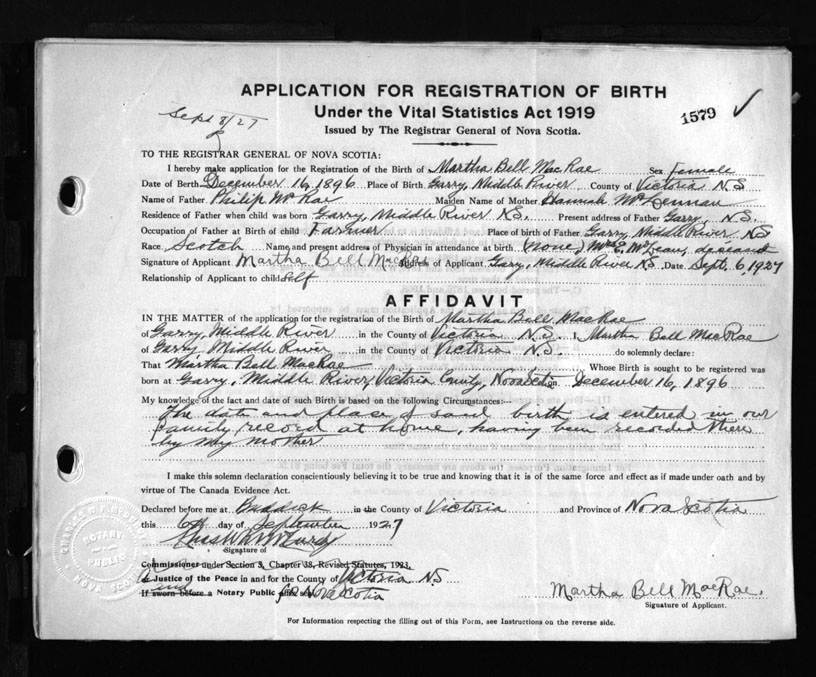 APPLICATION FOR REGISTRATION OF BIRTH
Under the Vital Statistics Act 1919
Issued by The Registrar General of Nova Scotia.
Sept 8/27
1579
TO THE REGISTRAR GENERAL OF NOVA SCOTIA:
I hereby make application for the Registration of the Birth of Martha Bell MacRae Sex Female
Date of Birth December 16, 1896 Place of Birth Garry, Middle River County of Victoria N.S
Name of Father Philip McRae Maiden Name of Mother Hannah McLennan
Residence of Father when child was born Garry, Middle River N.S. Present address of Father Garry, N.S.
Occupation of Father at Birth of child Farmer Place of birth of Father Garry, Middle River NS
Race Scotch Name and present address of Physician in attendance at birth (none) Mrs McLean, deceased
Signature of Applicant Martha Bell MacRae Address of Applicant Garry, Middle River N.S. Date Sept. 6, 1927
Relationship of Applicant to child Self
AFFIDAVIT
IN THE MATTER of the application for the registration of the Birth of Martha Bell MacRae
of Garry, Middle River in the County of Victoria N.S. I Martha Bell MacRae
of Garry, Middle River in the County of Victoria N.S. do solemnly declare:
That Martha Bell MacRae Whose Birth is sought to be registered was
born at Garry, Middle River, Victoria County, Nova Scotia on December 16, 1896
My knowledge of the fact and date of such Birth is based on the following Circumstances:—
The date and place of said birth is entered in our
family record at home, having been recorded there
by my mother
I make this solemn declaration conscientiously believing it to be true and knowing that it is of the same force and effect as if made under oath and by
virtue of The Canada Evidence Act.
Declared before me at Baddeck in the County of Victoria and Province of Nova Scotia
this 6th day of September 1927
Signature of
Commissioner under Section 3, Chapter 38, Revised Statutes, 1923.
A Justice of the Peace in and for the County of Victoria N.S
and
If sworn before a Notary Public for Nova Scotia
NOTARY PUBLIC
NOVA SCOTIA
Martha Bell MacRae.
Signature of Applicant.
For Information respecting the filling out of this Form, see Instructions on the reverse side.